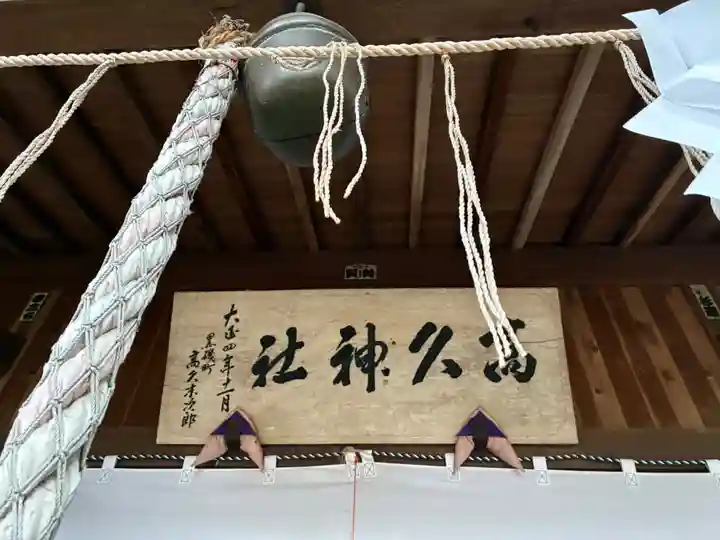 高久神社
大正四年十一月
黒磯町
高久末次郎